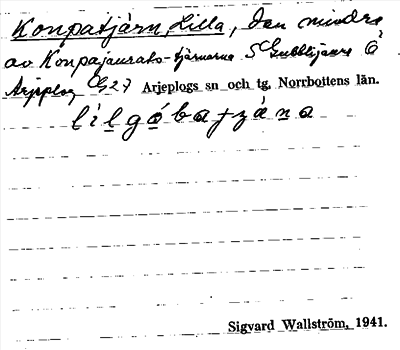 Konpatjärn, Lilla, Den mindre
av Konpajaurats-tjärnarna S Gubblijaure Ö
Arjeplog Arjeplogs sn och tg, Norrbottens län.
Sigvard Wallström, 1941.